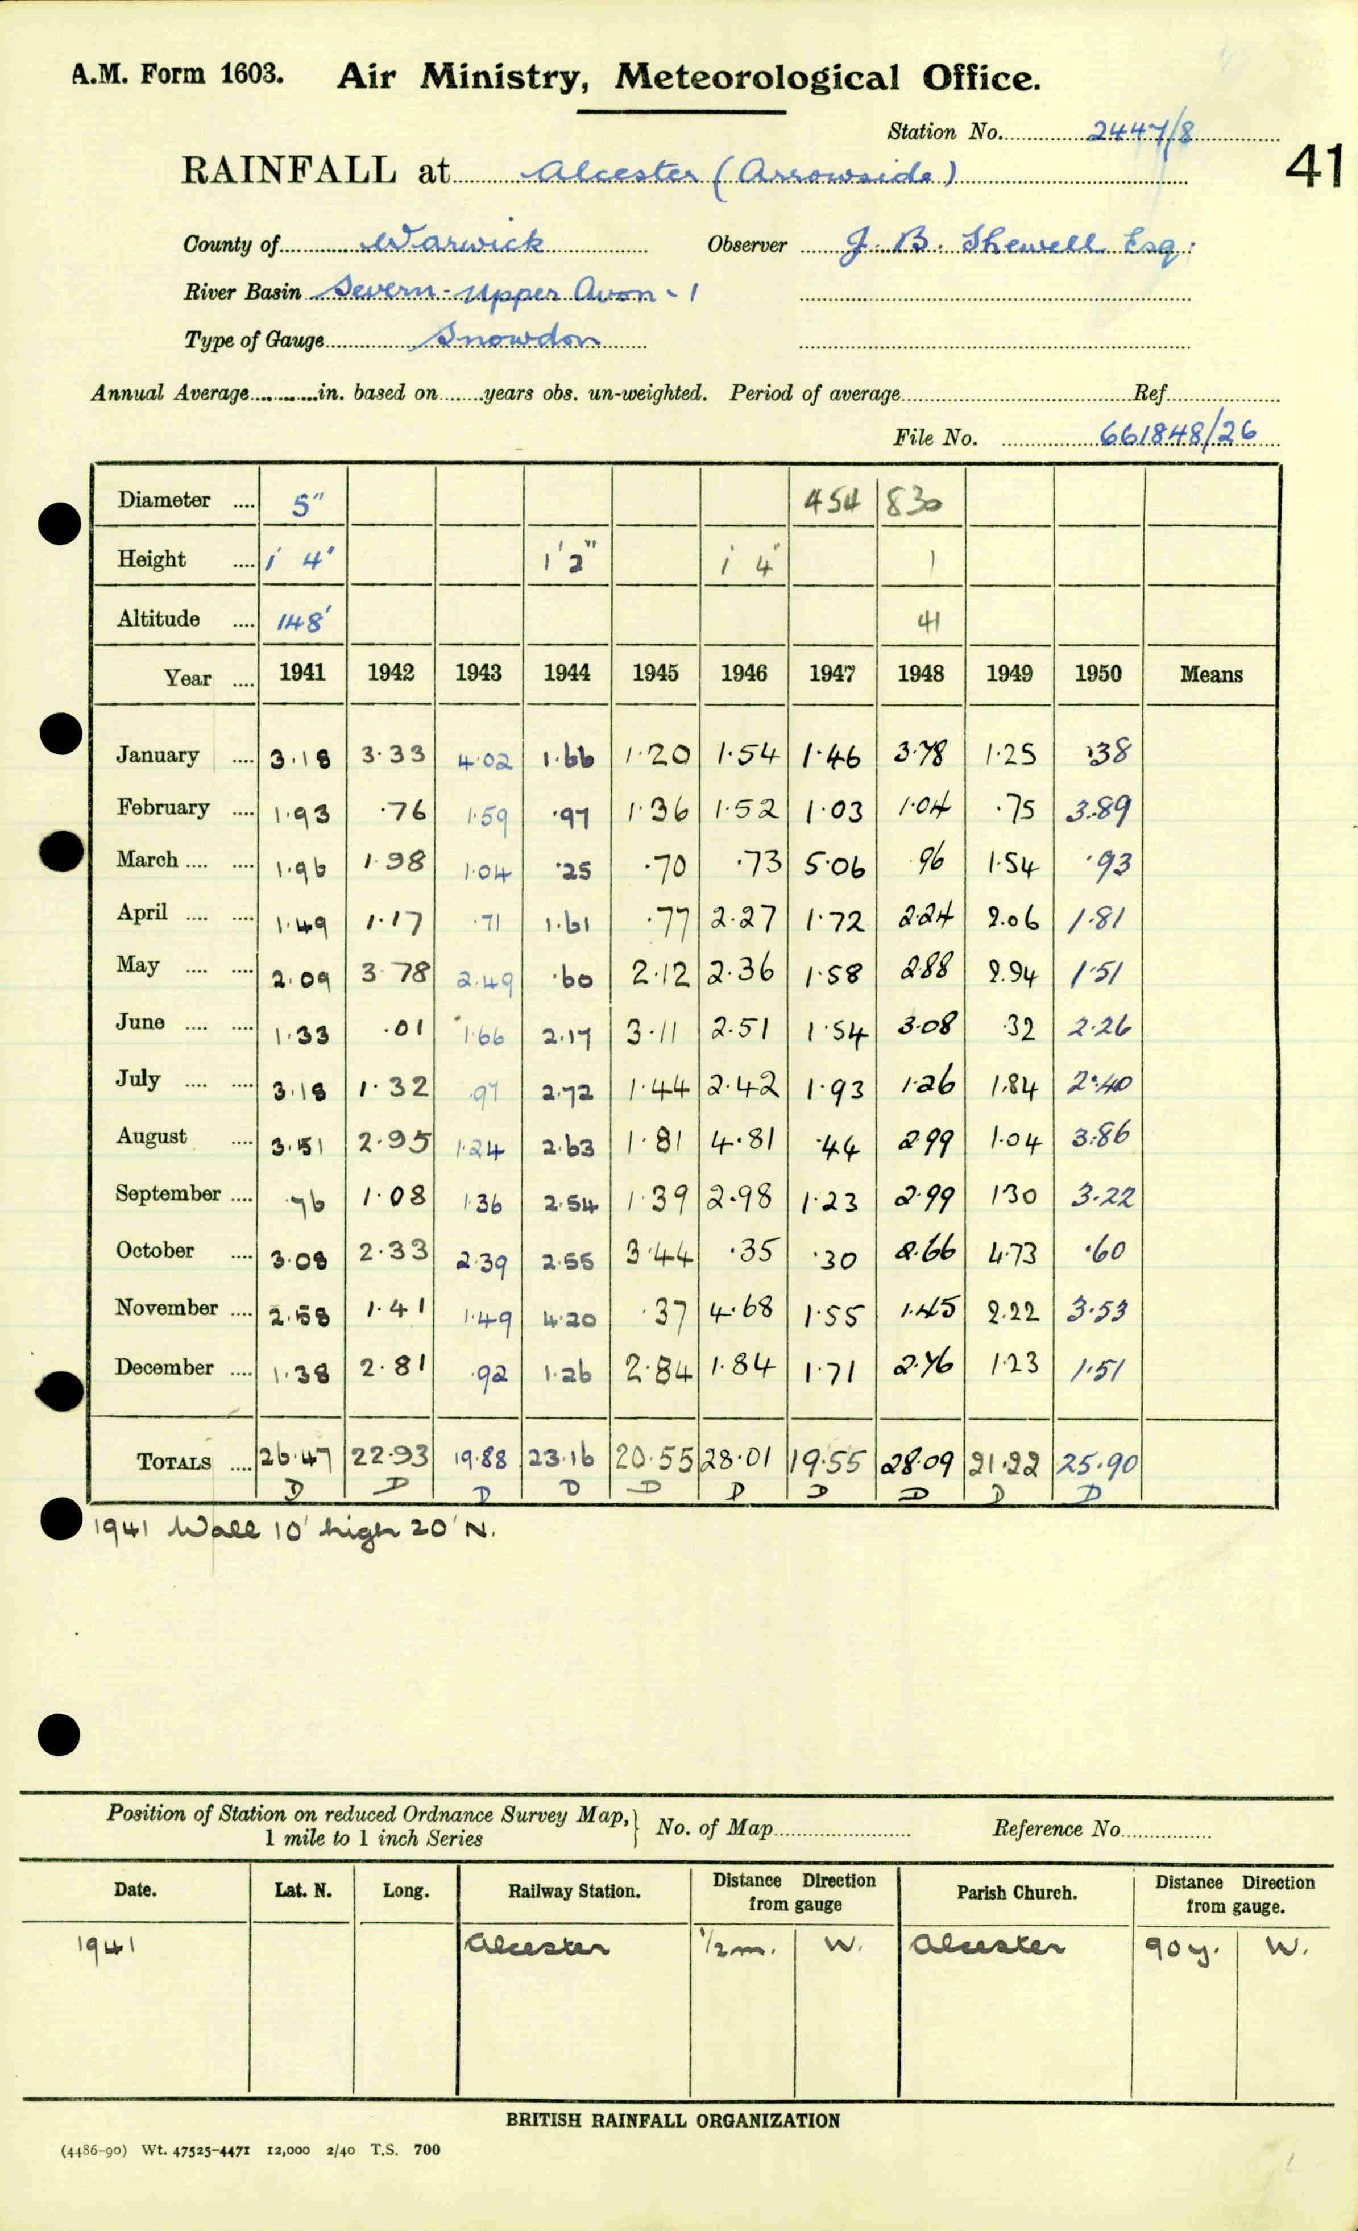 A.M. Form 1603. Air Ministry, Meteorological Office.
Station No. 2447/8
41
RAINFALL at Alcester (Arrowside)
County of Warwick Observer J. B. Shewell Esq.
River Basin Severn - Upper Avon - 1
Type of Gauge Snowdon
Annual Average in. based on years obs. un-weighted. Period of average Ref
File No. 661848/26
Diameter 5" 454 830
Height 1' 4" 1' 2" 1' 4" 1
Altitude 148' 41
Year 1941 1942 1943 1944 1945 1946 1947 1948 1949 1950 Means
January 3.18 3.33 4.02 1.66 1.20 1.54 1.46 3.78 1.25 .38
February 1.93 .76 1.59 .97 1.36 1.52 1.03 1.04 .75 3.89
March 1.96 1.98 1.04 .25 .70 .73 5.06 96 1.54 .93
April 1.49 1.17 .71 1.61 .77 2.27 1.72 2.24 2.06 1.81
May 2.09 3.78 2.49 .60 2.12 2.36 1.58 2.88 2.94 1.51
June 1.33 .01 1.66 2.17 3.11 2.51 1.54 3.08 .32 2.26
July 3.18 1.32 .97 2.72 1.44 2.42 1.93 1.26 1.84 2.40
August 3.51 2.95 1.24 2.63 1.81 4.81 .44 2.99 1.04 3.86
September .76 1.08 1.36 2.54 1.39 2.98 1.23 2.99 1.30 3.22
October 3.08 2.33 2.39 2.55 3.44 .35 .30 2.66 4.73 .60
November 2.58 1.41 1.49 4.20 .37 4.68 1.55 1.45 2.22 3.53
December 1.38 2.81 .92 1.26 2.84 1.84 1.71 2.76 1.23 1.51
TOTALS 26.47 22.93 19.88 23.16 20.55 28.01 19.55 28.09 21.22 25.90
D D D D D D D D D D
1941 Wall 10' high 20' N.
Position of Station on reduced Ordnance Survey Map, } No. of Map Reference No.
1 mile to 1 inch Series
Date. Lat. N. Long. Railway Station. Distance from gauge Direction Parish Church. Distance from gauge. Direction
1941 Alcester 1/2 m. W. Alcester 90 y. W.
BRITISH RAINFALL ORGANIZATION
(4486-90) Wt. 47525-4471 12,000 2/40 T.S. 700